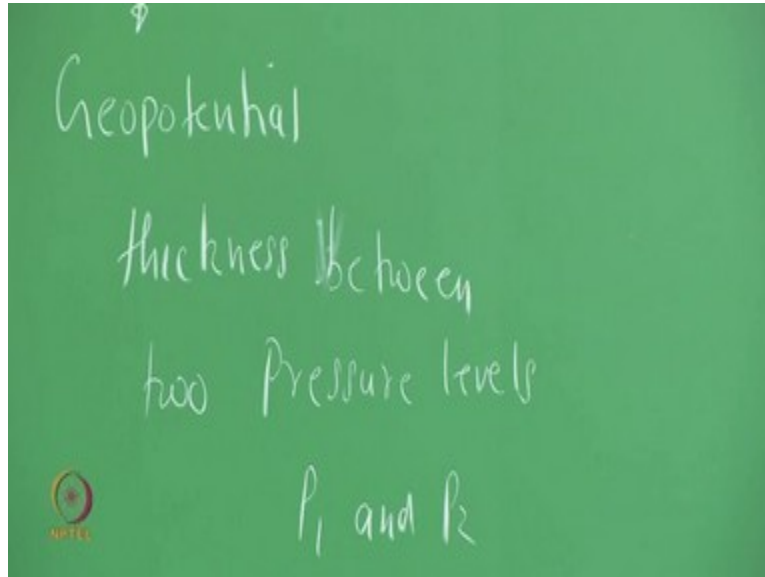 Geopotential
thickness between
two Pressure levels
P₁ and P₂
NPTEL